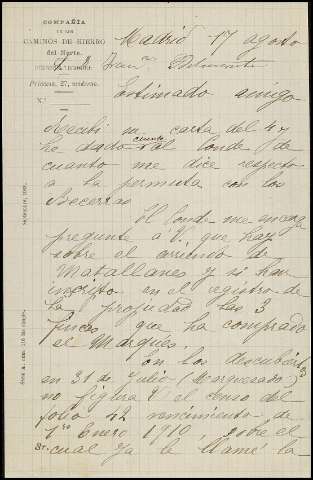 COMPAÑIA
DE LOS
CAMINOS DE HIERRO
del Norte.
Madrid 17 agosto
Príncipe, 27, moderno.
N.º
Sr. D. Fran.co Belmonte
Estimado amigo
Recibí su carta del 4 y
he dado cuenta al Conde de
cuanto me dice respecto
a la permuta con los
Becerras
El Conde me encarga
pregunte a V. que hay
sobre el arriendo de
Matallanes y si han
inscrito en el registro de
la propiedad las 3
fincas que ha comprado
el Marques.
En los descubiertos
en 31 de Julio (Marquesado)
no figura V el censo del
folio 42 vencimiento de
1.ro Enero 1910, sobre el
cual ya le llamé la